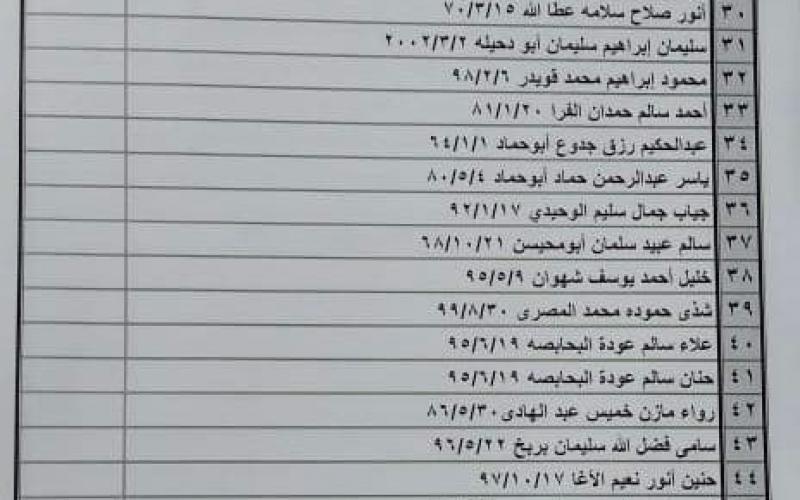 ٣٠ أنور صلاح سلامه عطا الله ٧٠/٣/١٥
٣١ سليمان إبراهيم سليمان أبو دحيله ٢٠٠٢/٣/٢
٣٢ محمود إبراهيم محمد قويدر ٩٨/٢/٦
٣٣ أحمد سالم حمدان الفرا ٨١/١/٢٠
٣٤ عبدالحكيم رزق جدوع أبوحماد ٦٤/١/١
٣٥ ياسر عبدالرحمن حماد أبوحماد ٨٠/٥/٤
٣٦ جياب جمال سليم الوحيدي ٩٢/١/١٧
٣٧ سالم عبيد سلمان أبومحيسن ٦٨/١٠/٢١
٣٨ خليل أحمد يوسف شهوان ٩٥/٥/٩
٣٩ شذى حموده محمد المصرى ٩٩/٨/٣٠
٤٠ علاء سالم عودة البحابصه ٩٥/٦/١٩
٤١ حنان سالم عودة البحابصه ٩٥/٦/١٩
٤٢ رواء مازن خميس عبد الهادى ٨٦/٥/٣٠
٤٣ سامى فضل الله سليمان بريخ ٩٦/٥/٢٢
٤٤ حنين أنور نعيم الأغا ٩٧/١٠/١٧